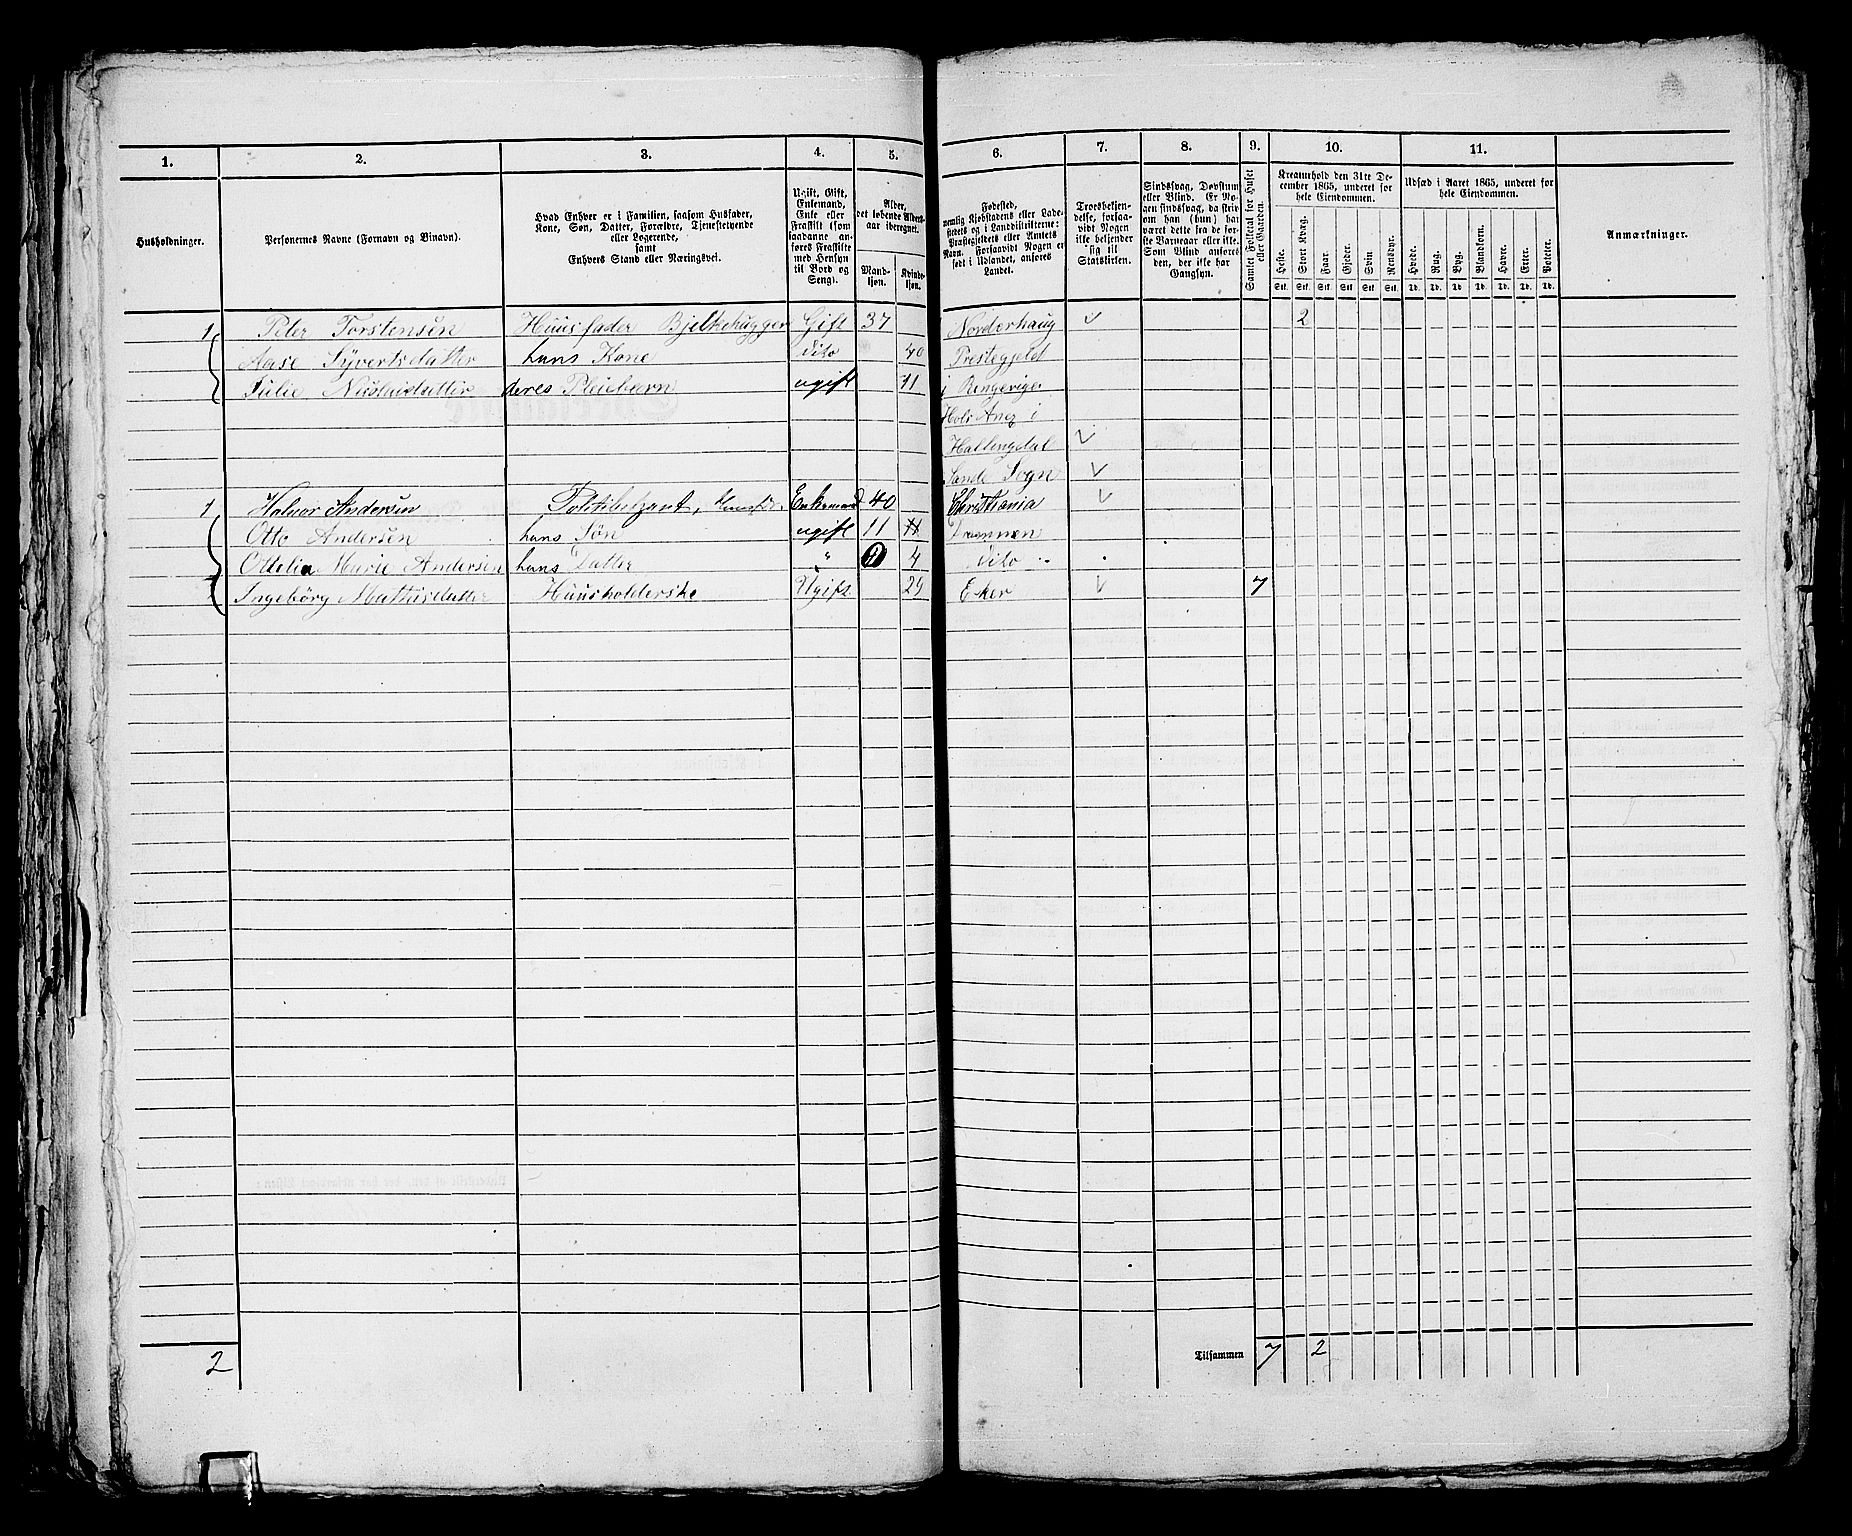 1. 2. 3. 4. 5. 6. 7. 8. 9. 10. 11.
Husholdninger.
Personernes Navne (Fornavn og Binavn).
Hvad Enhver er i Familien, saasom Husfader,
Kone, Søn, Datter, Forældre, Tjenestetyende
eller Logerende,
samt
Enhvers Stand eller Næringsvei.
Ugift, Gift,
Enkemand,
Enke eller
Fraskilt (som
saadanne an-
føres Fraskilte
med Hensyn
til Bord og
Seng).
Alder,
det løbende Alders-
aar iberegnet.
Mand-
kjøn.
Kvinde-
kjøn.
Fødested,
nemlig Kjøbstadens eller Lade-
stedets og i Landdistrikterne:
Præstegjeldets eller Amtets
Navn. Forsaavidt Nogen er
født i Udlandet, anføres
Landet.
Troesbekjen-
delse, forsaa-
vidt Nogen
ikke bekjender
sig til
Statskirken.
Sindssvag, Døvstum
eller Blind. Er No-
gen sindssvag, da skriv
om han (hun) har
været dette fra de før-
ste Barneaar eller ikke.
Som Blind anføres
den, der ikke har
Gangsyn.
Samlet Folketal for Huset
eller Gaarden.
Kreaturhold den 31te De-
cember 1865, underet for
hele Eiendommen.
Heste. Stort Kvæg. Faar. Gjeder. Svin. Rensdyr.
Stk. Stk. Stk. Stk. Stk. Stk.
Udsæd i Aaret 1865, underet for
hele Eiendommen.
Hvede. Rug. Byg. Blandkorn. Havre. Erter. Poteter.
Td. Td. Td. Td. Td. Td. Td.
Anmærkninger.
1 Peter Torstensøn Huusfader Bjelkehugger Gift 37 Norderhaug 2
Aase Syvertsdatter hans Kone dito 40 Prestegjeld
Julie deres Pleiebarn ugift 11 i Ringerige
i
Hallingdal
Sande Sogn
1 Halvor Andersøn Politibetjent, Enkemand 40 Christiania
Otto Andersøn hans Søn ugift 11 11 Drammen
Ottelia Marie Andersen hans Datter " 4 dito
Ingebørg Mathisdatter Huusholderske Ugift 29 Eker 7
2 Tilsammen 7 2